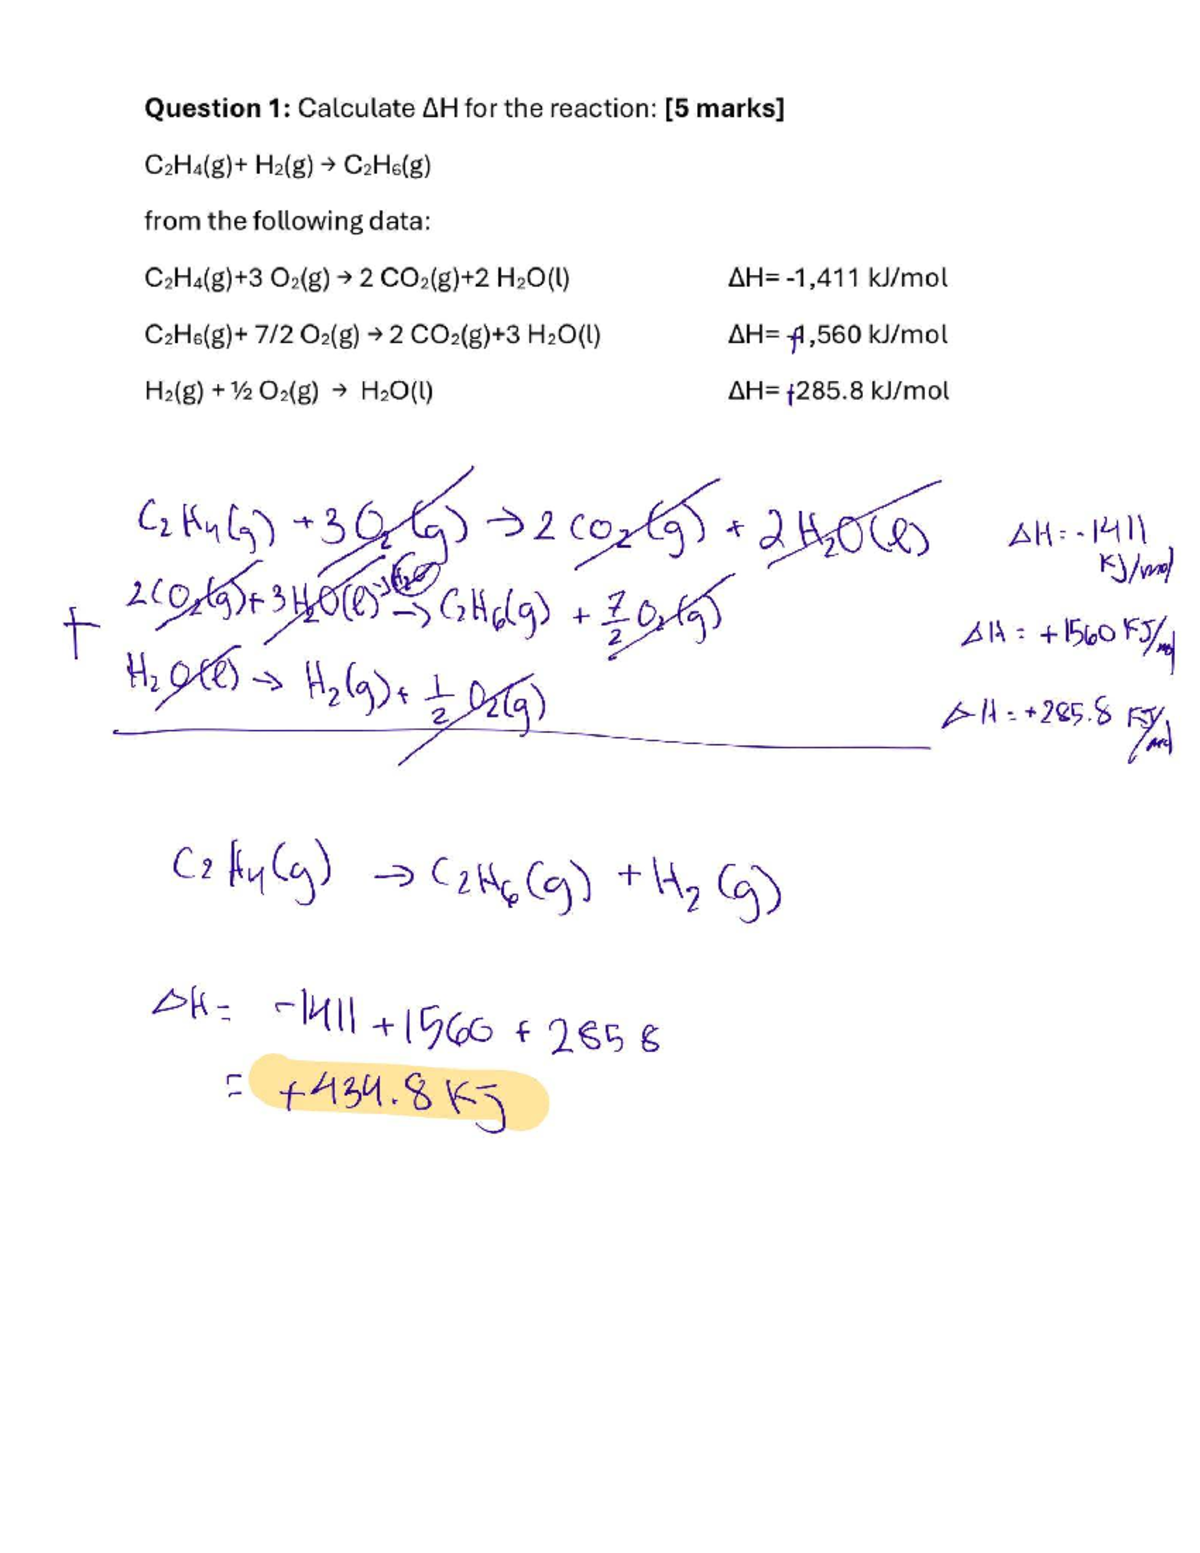 Question 1: Calculate ΔH for the reaction: [5 marks]
C₂H₄(g)+ H₂(g) → C₂H₆(g)
from the following data:
C₂H₄(g)+3 O₂(g) → 2 CO₂(g)+2 H₂O(l) ΔH= -1,411 kJ/mol
C₂H₆(g)+ 7/2 O₂(g) → 2 CO₂(g)+3 H₂O(l) ΔH= +1,560 kJ/mol
H₂(g) + ½ O₂(g) → H₂O(l) ΔH= +285.8 kJ/mol
C₂H₄(g) + 3O₂(g) → 2CO₂(g) + 2H₂O(l) ΔH = -1411 KJ/mol
2CO₂(g) + 3H₂O(l) → C₂H₆(g) + 7/2 O₂(g) ΔH = +1560 KJ/mol
+
H₂O(l) → H₂(g) + 1/2 O₂(g) ΔH = +285.8 KJ/mol
C₂H₄(g) → C₂H₆(g) + H₂(g)
ΔH = -1411 + 1560 + 285 8
= +434.8 KJ